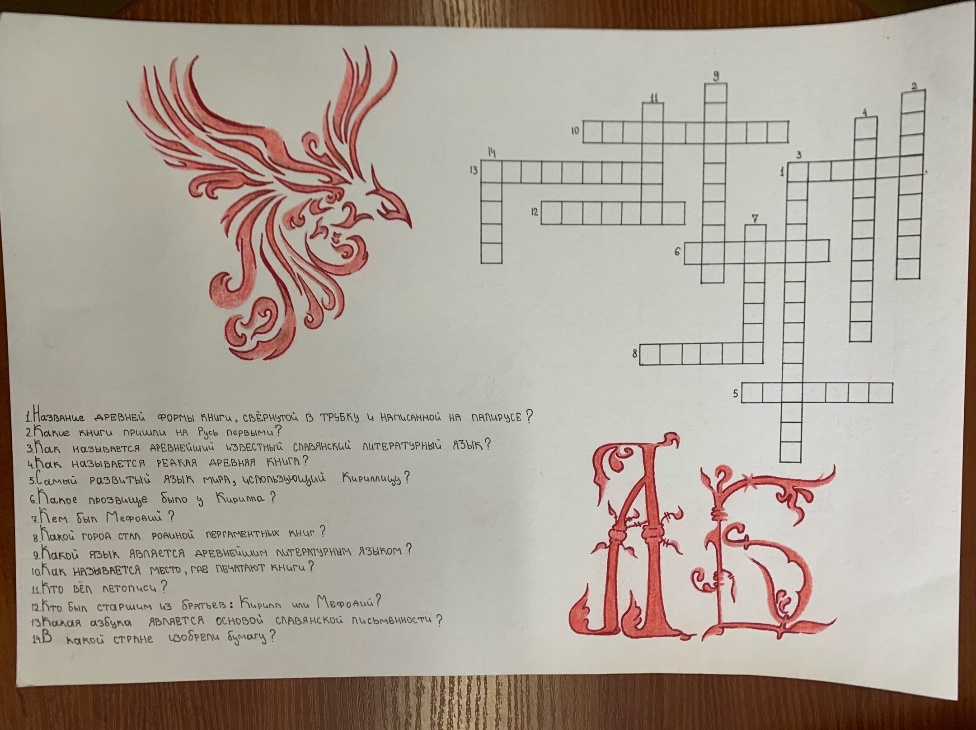 9
2
11
4
10
14
3
13
1
12
7
6
8
5
1.Название древней формы книги, свёрнутой в трубку и написанной на папирусе?
2.Какие книги пришли на Русь первыми?
3.Как называется древнейший известный славянский литературный язык?
4.Как называется редкая древняя книга?
5.Самый развитый язык мира, использующий Кириллицу?
6.Какое прозвище было у Кирилла?
7.Кем был Мефодий?
8.Какой город стал родиной пергаментных книг?
9.Какой язык является древнейшим литературным языком?
10.Как называется место, где печатают книги?
11.Кто вёл летописи?
12.Кто был старшим из братьев: Кирилл или Мефодий?
13.Какая азбука является основой славянской письменности?
14.В какой стране изобрели бумагу?
А Б